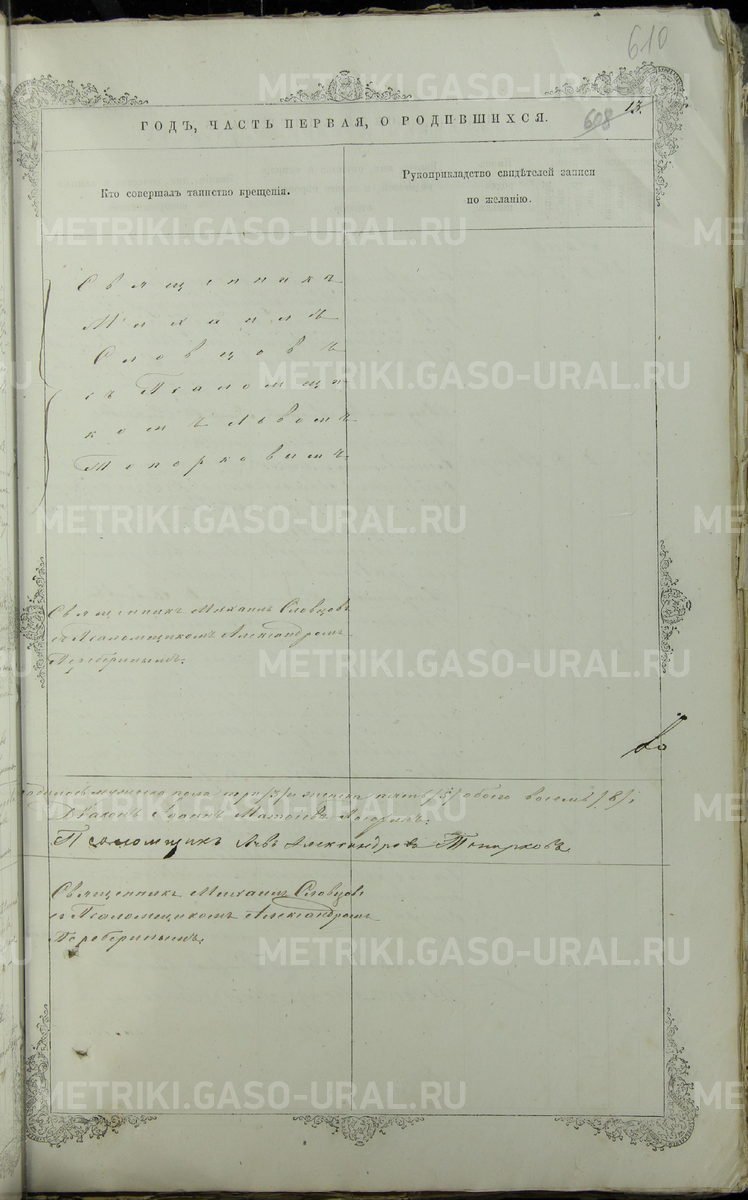 610
13.
608
ГОДЪ, ЧАСТЬ ПЕРВАЯ, О РОДИВШИХСЯ.
Кто совершалъ таинство крещенія.
Рукоприкладство свидѣтелей записи
по желанію.
Священникъ
Михаилъ
Словцовъ
съ Псаломщи
комъ Львомъ
Топорковимъ
Священникъ Михаилъ Словцовъ
съ Псаломщикомъ Александромъ
мужеска пола три /3/ и женска пять /5/ обоего восемь /8/,
Діаконъ Іоаннъ
Псаломщикъ Левъ Александровъ Топорковъ
Священникъ Михаилъ Словцовъ
съ Псаломщикомъ Александромъ
METRIKI.GASO-URAL.RU